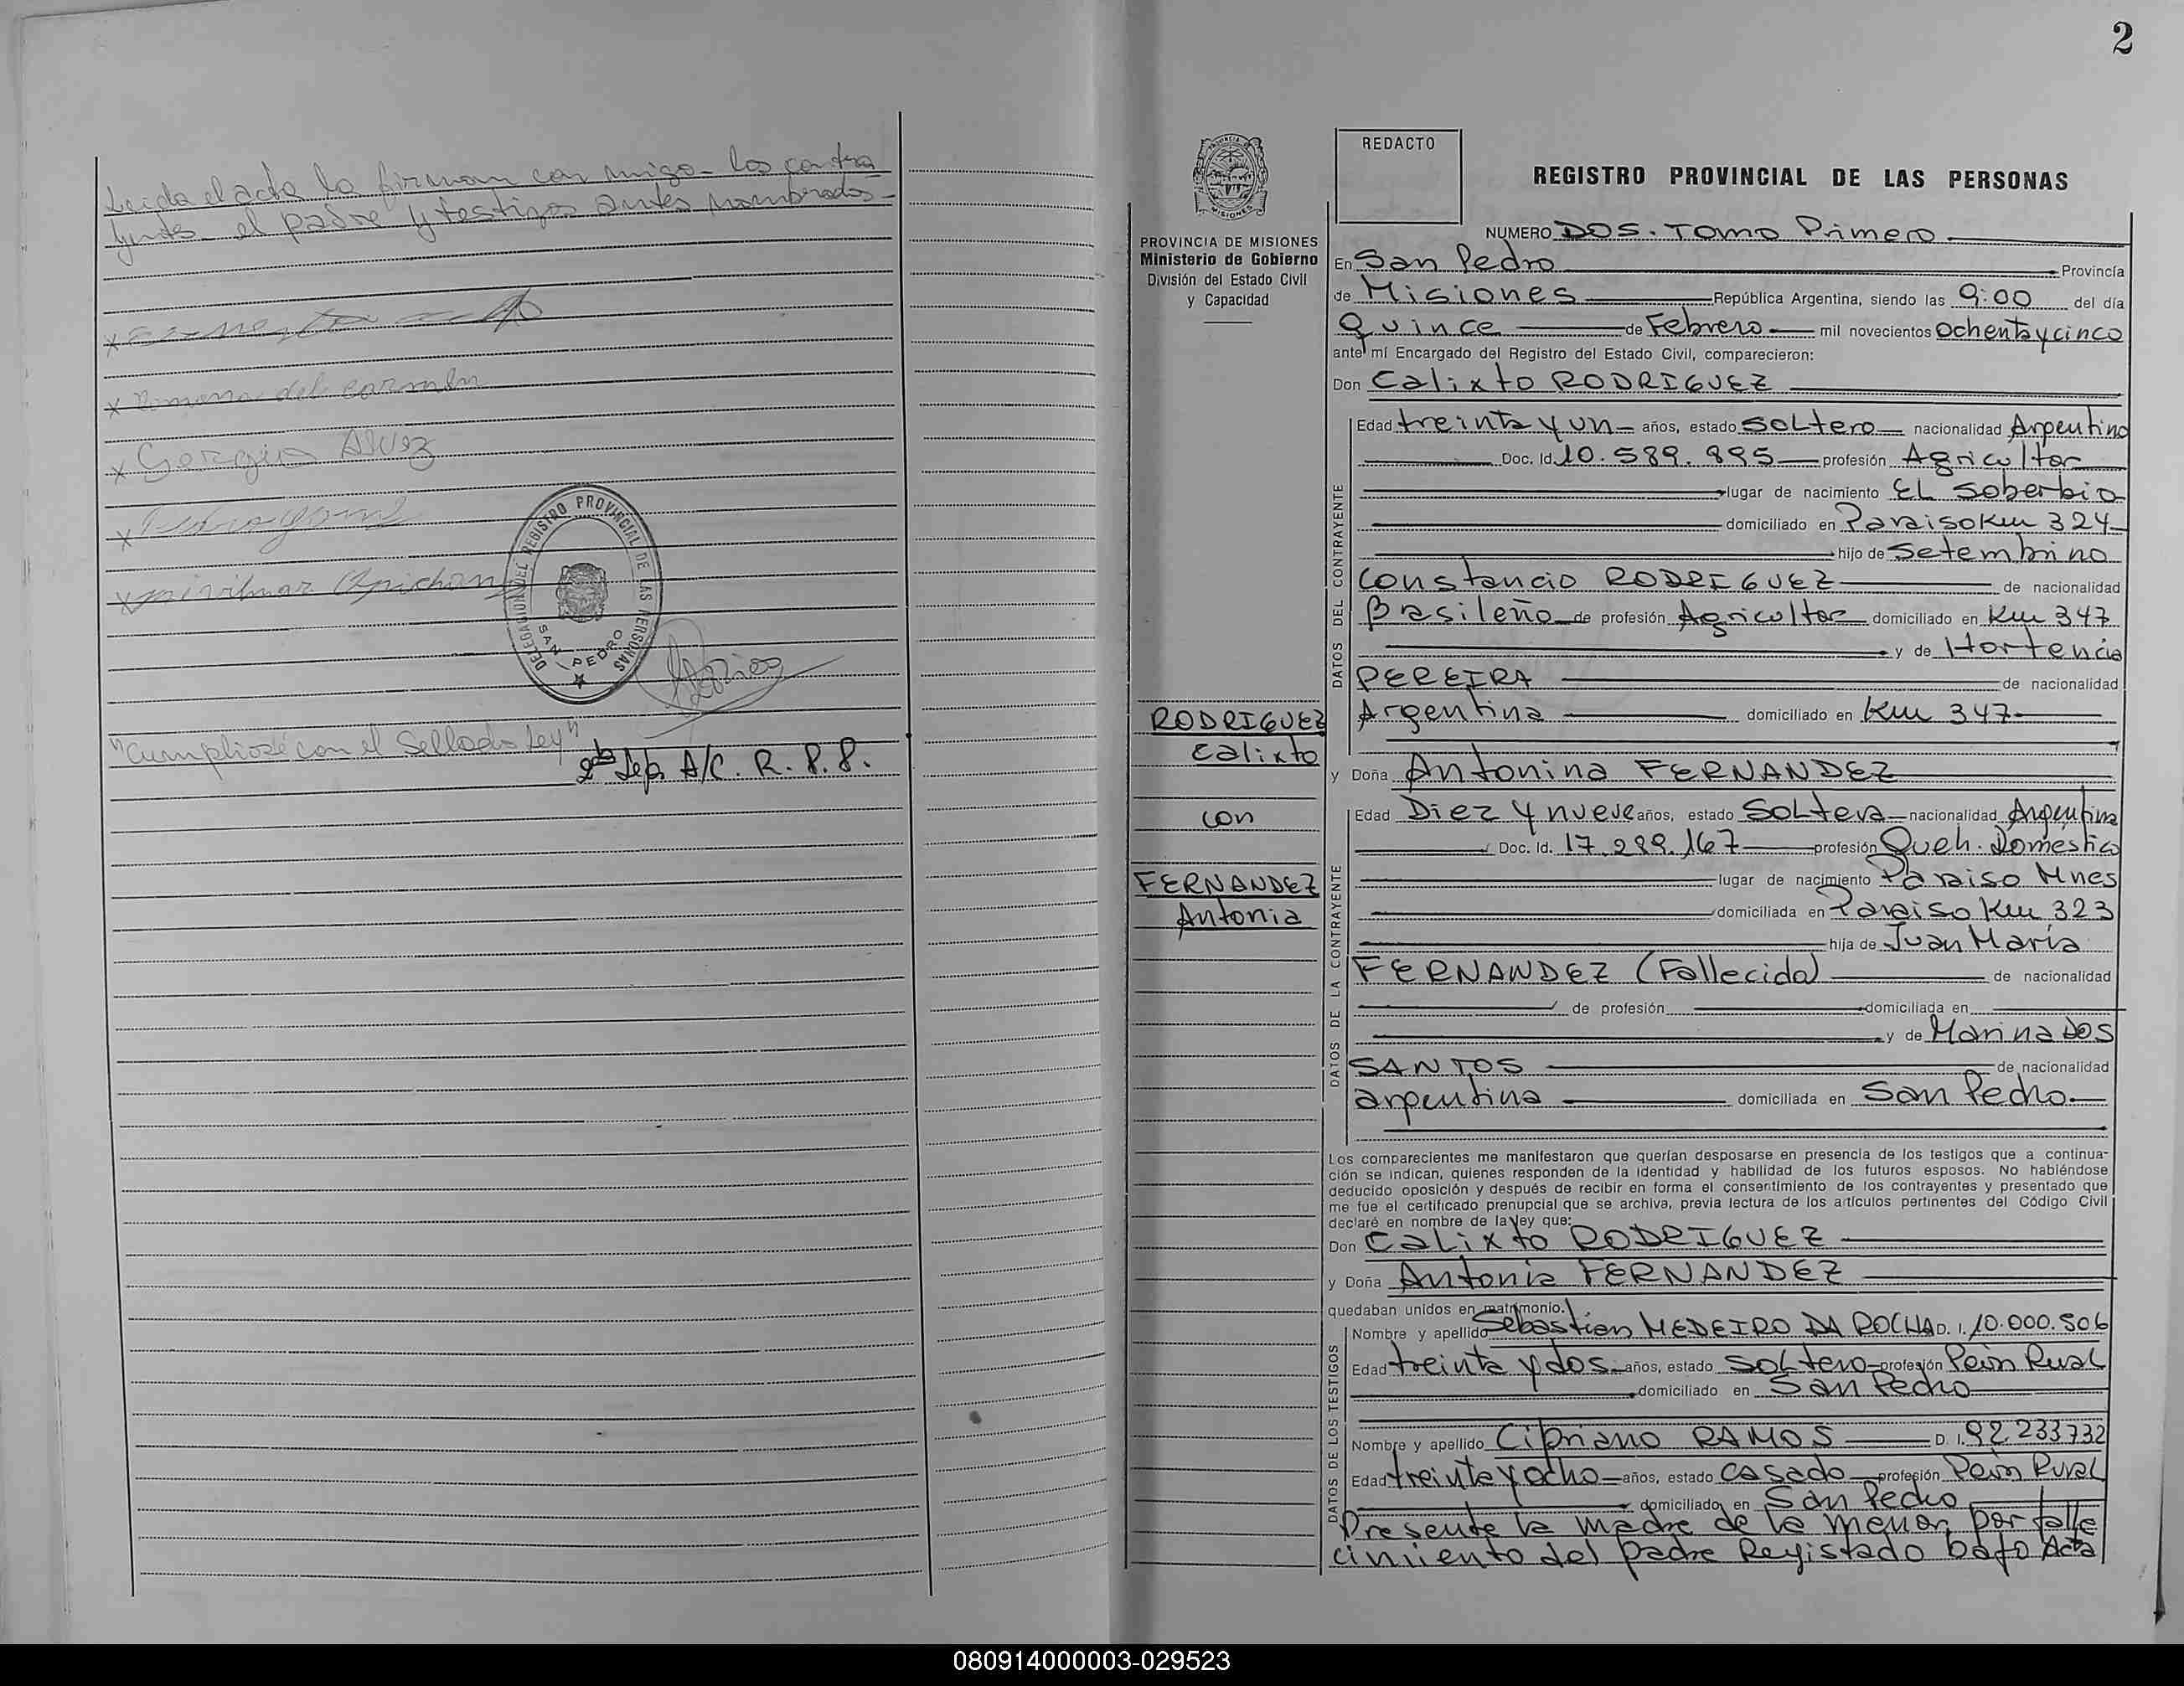 2
Leida el acta la firman con migo los contra
yentes el padre y testigos antes nombrados
x Ramona del carmen
x Gergia Alvez
x Pedro
x
DELEGACION DEL REGISTRO PROVINCIAL DE LAS PERSONAS
SAN PEDRO
"Cumpliose con el Sellado Ley"
A/C. R. P. P.
PROVINCIA DE MISIONES
Ministerio de Gobierno
División del Estado Civil
y Capacidad
RODRIGUEZ
Calixto
con
FERNANDEZ
Antonia
REDACTO
REGISTRO PROVINCIAL DE LAS PERSONAS
NUMERO DOS. TOMO Primero
En San Pedro Provincia
de Misiones República Argentina, siendo las 9:00 del día
Quince de Febrero mil novecientos Ochenta y cinco
ante mí Encargado del Registro del Estado Civil, comparecieron:
Don Calixto RODRIGUEZ
DATOS DEL CONTRAYENTE
Edad treinta y un años, estado SOLtero nacionalidad Argentino
Doc. Id. 10.589.895 profesión Agricultor
lugar de nacimiento EL Soberbio
domiciliado en Paraiso Km 324
hijo de Setembrino
Constancio RODRIGUEZ de nacionalidad
Brasileño de profesión Agricultor domiciliado en Km 347
y de Hortencia
PEREIRA de nacionalidad
Argentina domiciliado en Km 347
y Doña Antonina FERNANDEZ
DATOS DE LA CONTRAYENTE
Edad Diez y nueve años, estado SOLtera nacionalidad Argentina
Doc. Id. 17.289.167 profesión Queh. Domestico
lugar de nacimiento Paraiso Mnes
domiciliada en Paraiso Km 323
hija de Juan María
FERNANDEZ (Fallecido) de nacionalidad
de profesión domiciliada en
y de Marina DOS
SANTOS de nacionalidad
argentina domiciliada en San Pedro
Los comparecientes me manifestaron que querían desposarse en presencia de los testigos que a continua-
ción se indican, quienes responden de la identidad y habilidad de los futuros esposos. No habiéndose
deducido oposición y después de recibir en forma el consentimiento de los contrayentes y presentado que
me fue el certificado prenupcial que se archiva, previa lectura de los artículos pertinentes del Código Civil
declaré en nombre de la ley que:
Don Calixto RODRIGUEZ
y Doña Antonia FERNANDEZ
quedaban unidos en matrimonio.
DATOS DE LOS TESTIGOS
Nombre y apellido Sebastian MEDEIRO DA ROCHA D. I. 10.000.506
Edad treinta y dos años, estado SOLtero profesión Peón Rural
domiciliado en San Pedro
Nombre y apellido Cipriano RAMOS D. I. 92.233732
Edad treinta y ocho años, estado casado profesión Peón Rural
domiciliado en San Pedro
Presente la madre de la menor, por falle
cimiento del padre Registado bajo Acta
080914000003-029523